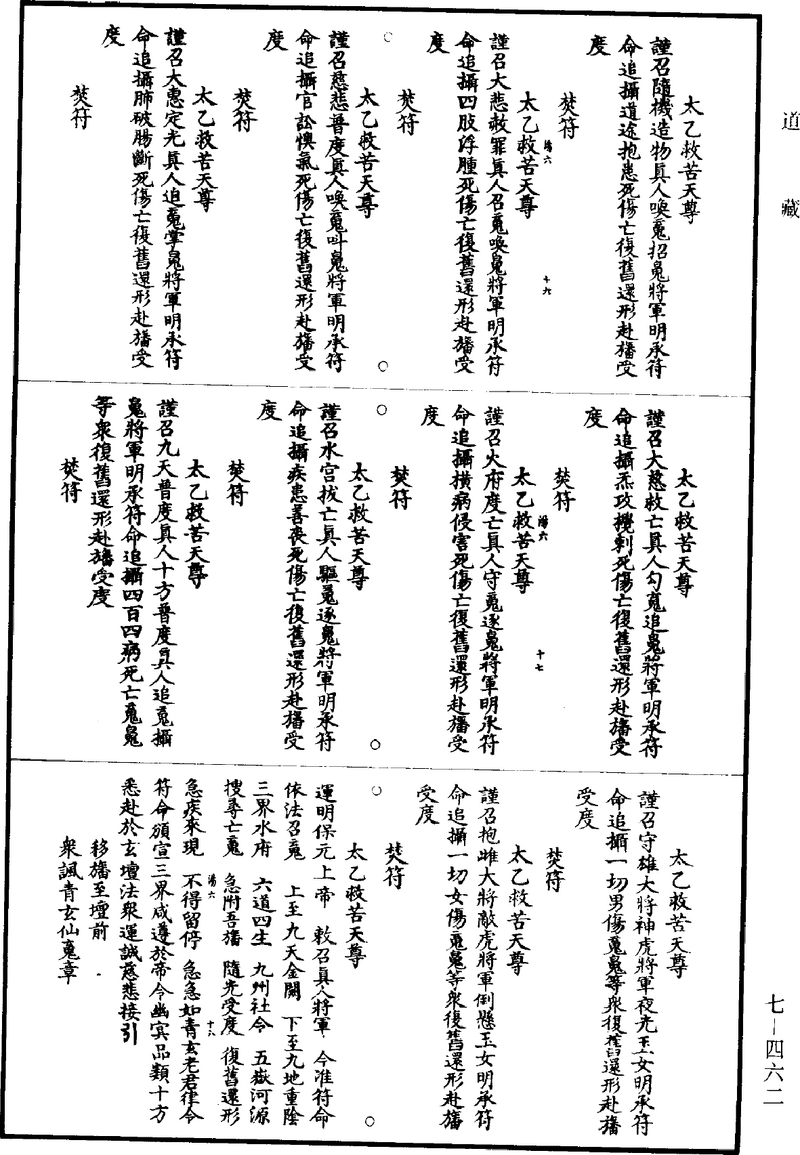 道藏
太乙救苦天尊
謹召隨機造物真人喚䰟招䰟將軍明承符
命追攝道途抱患死傷亡復舊還形赴旛受
度
焚符
太乙救苦天尊
湯六
十六
謹召大悲救罪真人召䰟喚䰟將軍明承符
命追攝四肢浮腫死傷亡復舊還形赴旛受
度
焚符
太乙救苦天尊
謹召慈悲普度真人喚䰟叫䰟將軍明承符
命追攝官訟懊氣死傷亡復舊還形赴旛受
度
焚符
太乙救苦天尊
謹召大惠定光真人追䰟掌䰟將軍明承符
命追攝肺破腸斷死傷亡復舊還形赴旛受
度
焚符
太乙救苦天尊
謹召大慈救亡真人勾䰟追䰟將軍明承符
命追攝炁攻攪刺死傷亡復舊還形赴旛受
度
焚符
太乙救苦天尊
湯六
十七
謹召火府度亡真人守䰟逐䰟將軍明承符
命追攝橫病侵害死傷亡復舊還形赴旛受
度
焚符
太乙救苦天尊
謹召水宮拔亡真人驅䰟逐䰟將軍明承符
命追攝疾患善喪死傷亡復舊還形赴旛受
度
焚符
太乙救苦天尊
謹召九天普度真人十方普度真人追䰟攝
䰟將軍明承符命追攝四百四病死亡䰟䰟
等衆復舊還形赴旛受度
焚符
太乙救苦天尊
謹召守雄大將神虎將軍夜光玉女明承符
命追攝一切男傷䰟䰟等衆復舊還形赴旛
受度
焚符
太乙救苦天尊
謹召抱雌大將敵虎將軍倒懸玉女明承符
命追攝一切女傷䰟䰟等衆復舊還形赴旛
受度
焚符
太乙救苦天尊
運明保元上帝 敕召真人將軍 今准符命
依法召䰟 上至九天金闕 下至九地重陰
三界水府 六道四生 九州社令 五嶽河源
搜尋亡䰟 急附吾旛 隨光受度 復舊還形
湯六
十八
急疾來現 不得留停 急急如青玄老君律令
符命頒宣三界咸遵於帝令幽冥品類十方
悉赴於玄壇法衆運誠慈悲接引
移旛至壇前
衆諷青玄仙䰟章
七—四六二